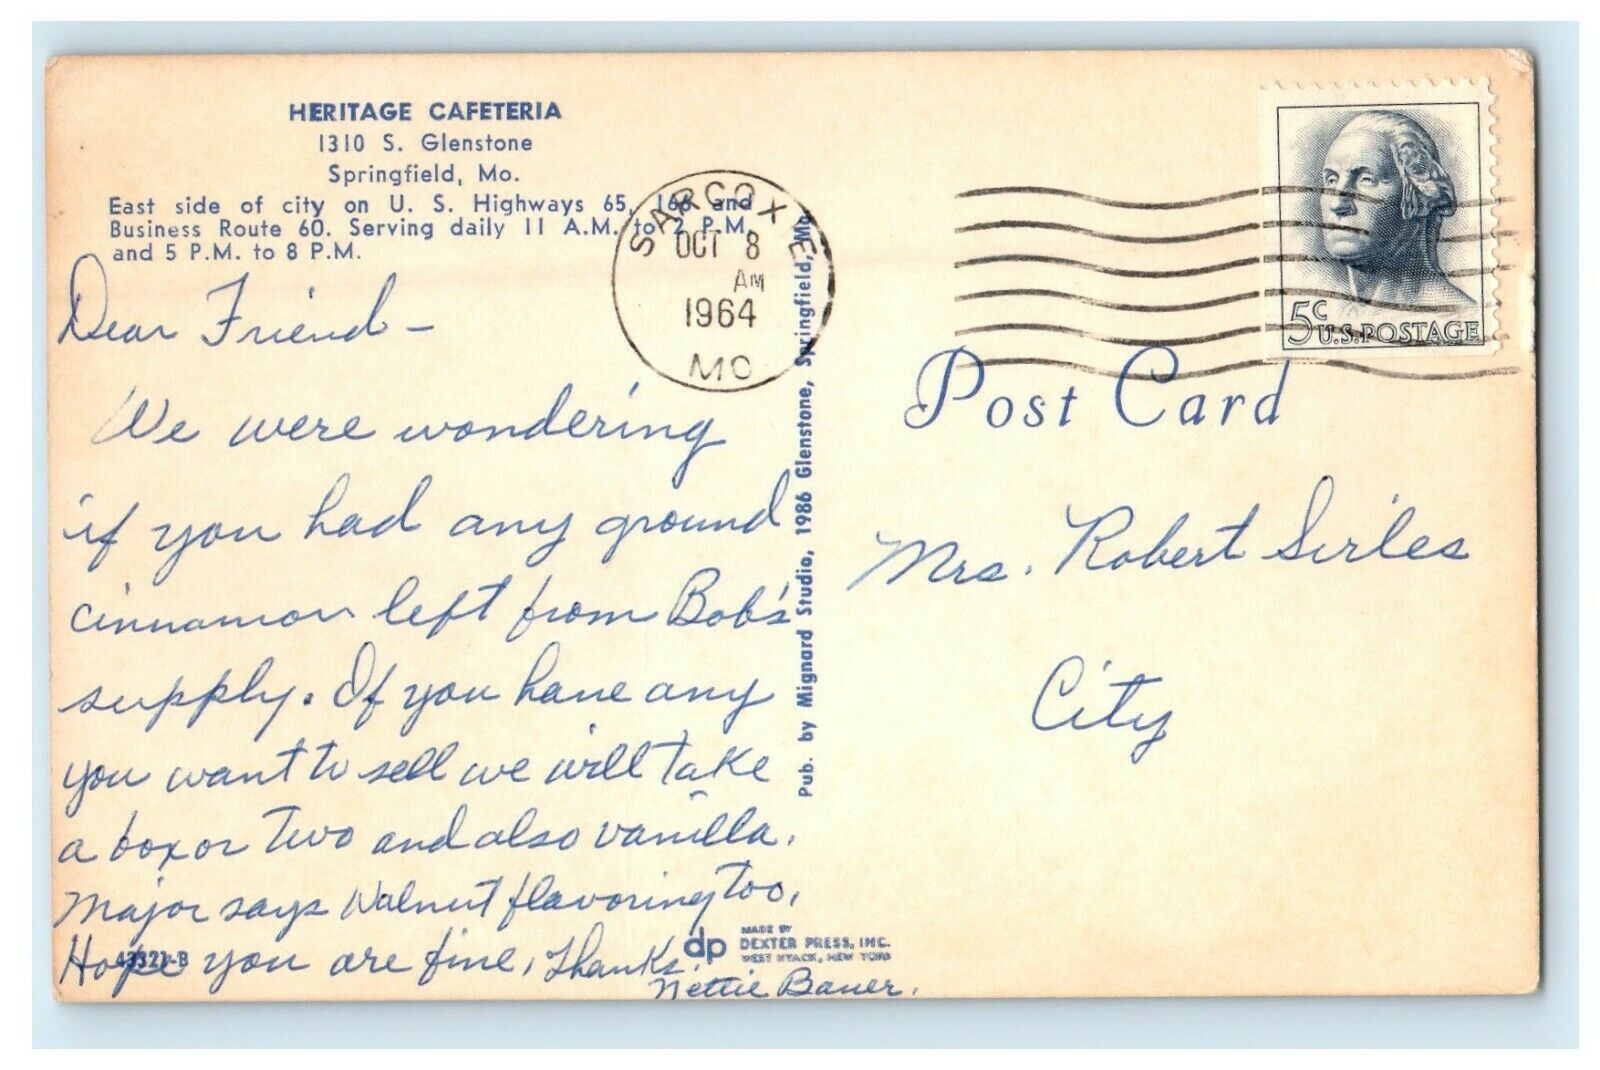 HERITAGE CAFETERIA
1310 S. Glenstone
Springfield, Mo.
East side of city on U. S. Highways 65, 166 and
Business Route 60. Serving daily 11 A.M. to 2 P.M.
and 5 P.M. to 8 P.M.
SARCOXIE
OCT 8
AM
1964
MO
5c
U.S. POSTAGE
Post Card
Dear Friend -
We were wondering
if you had any ground
cinnamon left from Bob's
supply. If you have any
you want to sell we will take
a box or two and also vanilla.
Major says Walnut flavoring too.
Hope you are fine. Thanks.
Nettie Bauer.
Pub. by Mignard Studio, 1986 Glenstone, Springfield, Mo.
Mrs. Robert Sirles
City
dp
MADE BY
DEXTER PRESS, INC.
WEST NYACK, NEW YORK